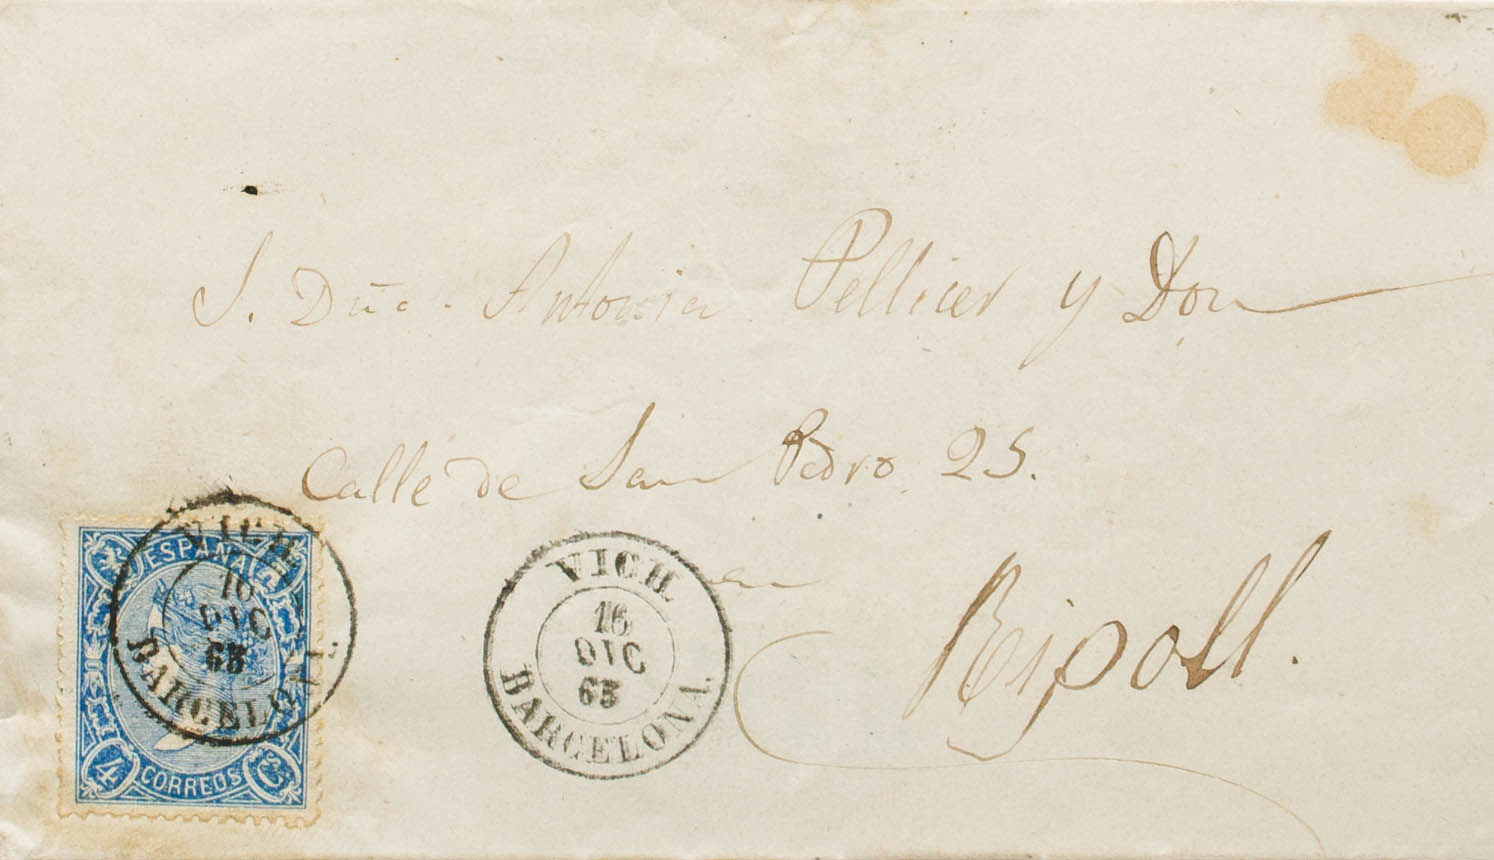 S. Dña. Antonia Pellicer y Don
Calle de San Pedro 25.
en
Ripoll.
VICH
16
DIC
65
BARCELONA.
VICH
16
DIC
65
BARCELONA.
ESPAÑA
4 CORREOS Cs